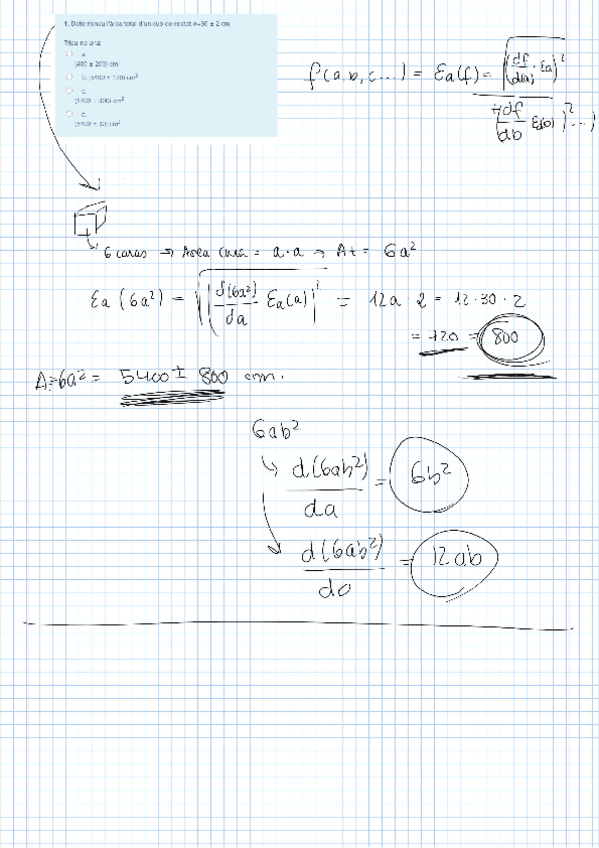 1. Determineu l'àrea total d'un cub de costat a=30 ± 2 cm
Trieu-ne una:
a.
b.
c.
d.
f(a,b,c...) = Ea(f) = √(df/da · Ea)²
+(df/db E(b))² ...)
6 caras → Area cara = a·a → At = 6a²
Ea (6a²) = √|d(6a²)/da Ea(a)|² = 12a · 2 = 12·30·2
= 720 = 800
A=6a² = 5400 ± 800 cm.
6ab²
↳ d(6ab²)/da = 6b²
d(6ab²)/db = 12ab